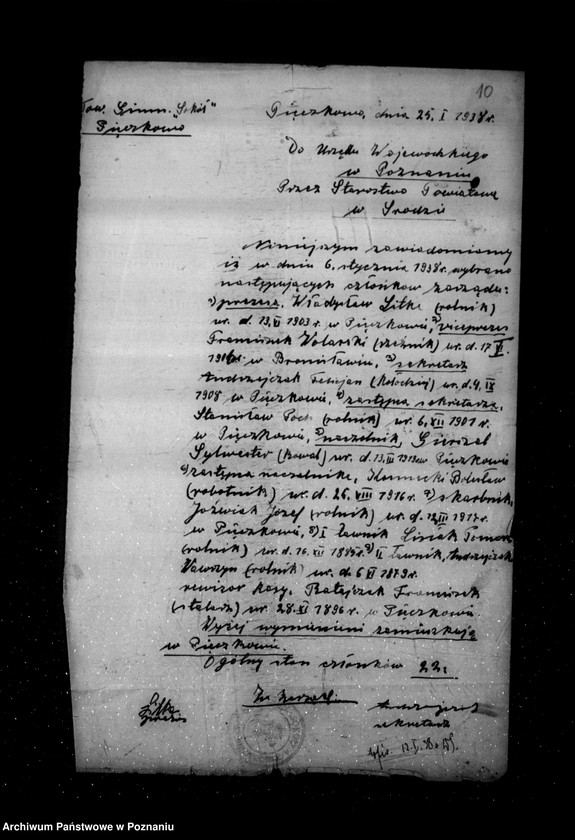 10
Tow. Gimn. "Sokół"
Pięczkowo
Pięczkowo, dnia 25. I 1938 r.
Do Urzędu Wojewódzkiego
w Poznaniu
Przez Starostwo Powiatowe
w Środzie
Niniejszym zawiadomiamy
iż w dniu 6. stycznia 1938 r. wybrano
następujących członków zarządu:
1) prezes, Władysław Litke (rolnik)
ur. d. 13, VI 1903 r. w Pięczkowie, 2) viceprezes
Franciszek Wolarski (rzeźnik) ur. d. 17 VI.
w Bronisławiu, 3) sekretarz
Andrzejczak Felicjan (Kołodziej) ur. d. 9, IX
1908 w Pięczkowie, 4) zastępca sekretarza,
Stanisław (rolnik) ur. 6, XII 1901 r.
w Pięczkowie, 5) naczelnik,
Sylwester (Kowal) ur. d. 13, III 1913 w Pięczkowie
6) zastępca naczelnika, Bolesław
(robotnik) ur. d. 26. VIII 1916 r. 7) skarbnik,
Jóźwiak Józef (rolnik) ur. d. 1917 r.
w Pięczkowie, 8) I ławnik Lisiak Tomasz
(rolnik) ur. d. 16. XII 1885 r. 9) II ławnik, Andrzejczak
Wawrzyn (rolnik) ur. d. 6 VI 1879 r.
rewizor kasy. Ratajczak Franciszek
(stolarz) ur. 28. XI 1896 r. w Pięczkowie.
Wyżej wymienieni zamieszkują
w Pięczkowie.
Ogólny stan członków 22.
Za Zarząd
Litke
prezes
Andrzejczak
sekretarz
Archiwum Państwowe w Poznaniu